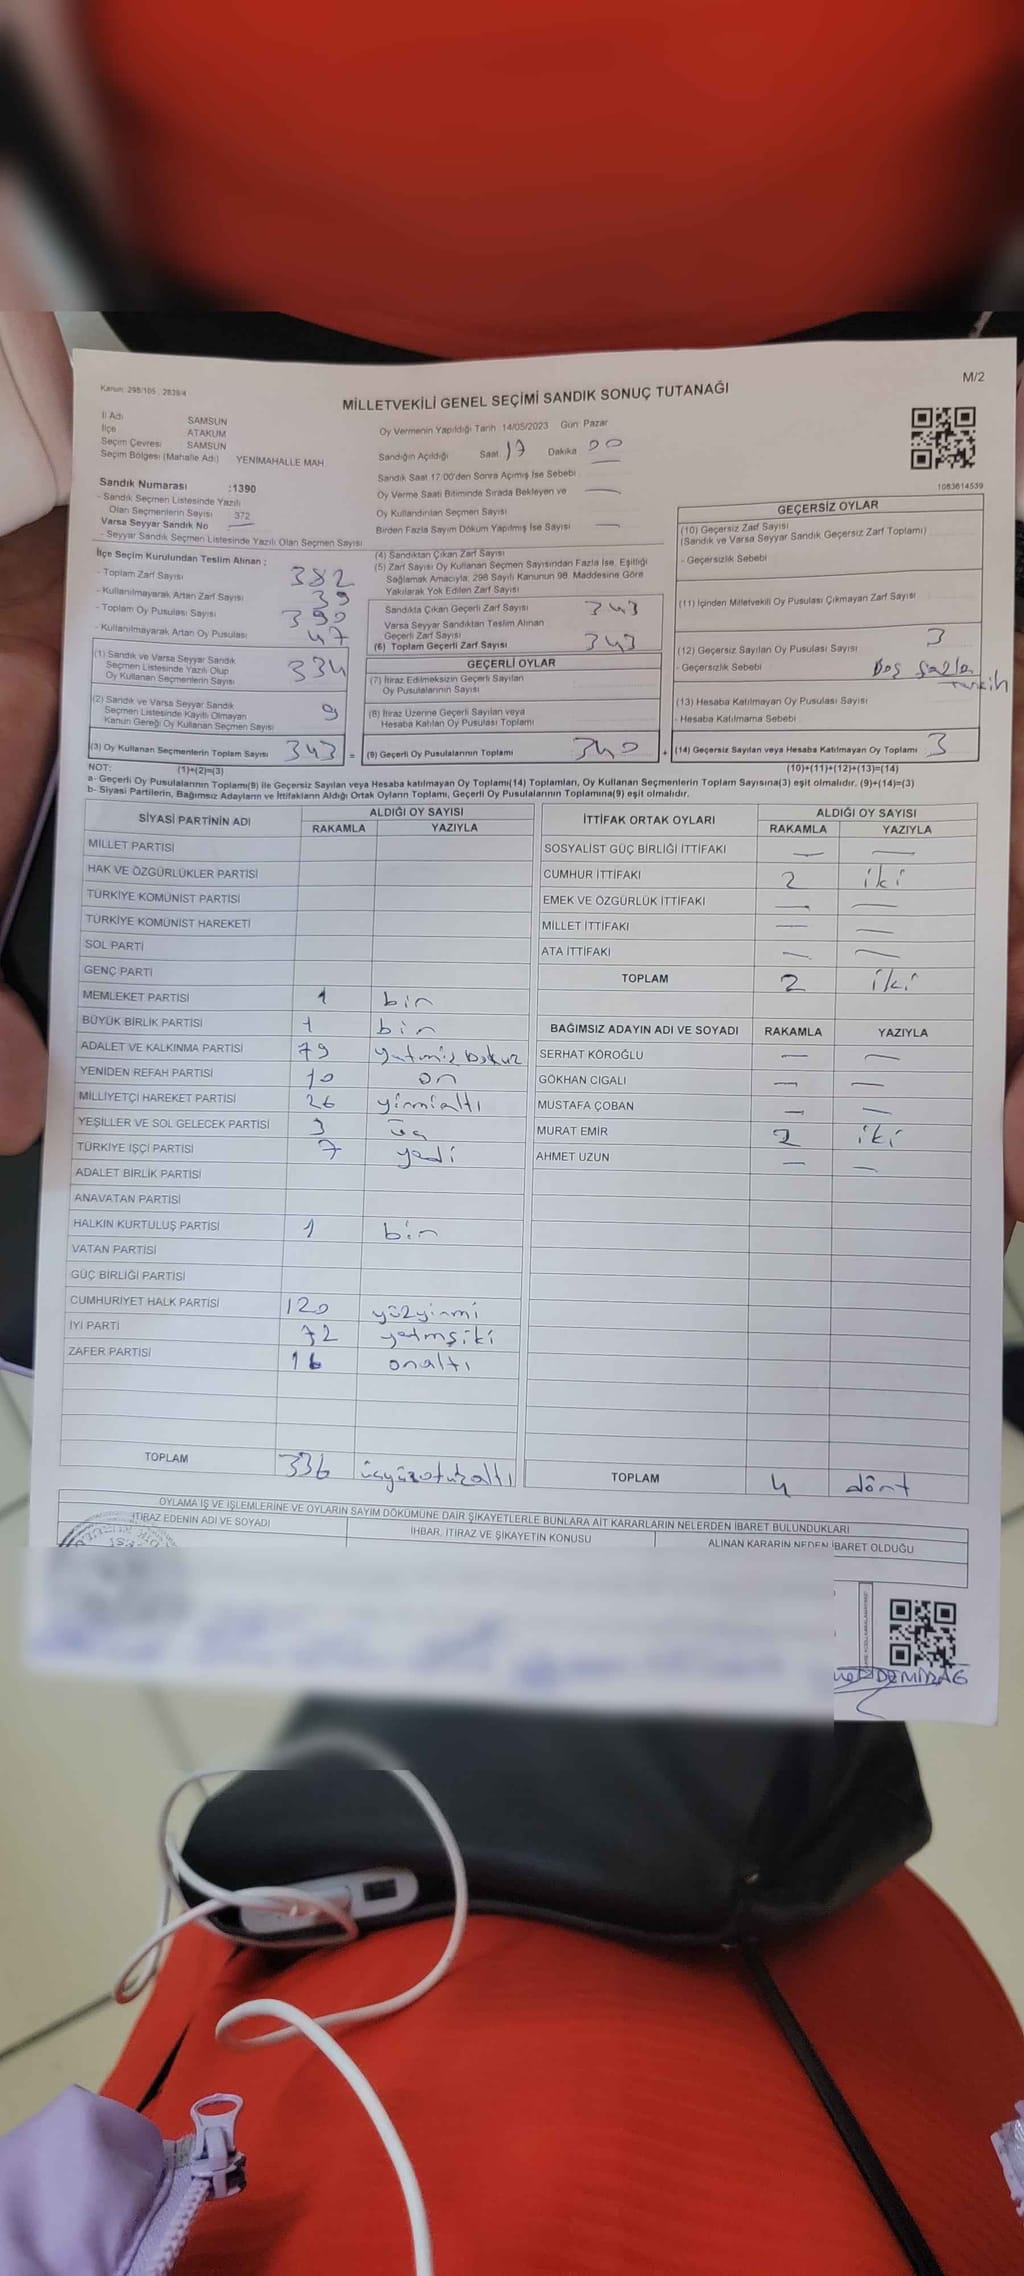 Karun: 298/105 : 2839/4
M/2
MİLLETVEKİLİ GENEL SEÇİMİ SANDIK SONUÇ TUTANAĞI
İl Adı SAMSUN
İlçe ATAKUM
Seçim Çevresi SAMSUN
Seçim Bölgesi (Mahalle Adı) YENİMAHALLE MAH.
Sandık Numarası :1390
- Sandık Seçmen Listesinde Yazılı
Olan Seçmenlerin Sayısı 372
Varsa Seyyar Sandık No —
- Seyyar Sandık Seçmen Listesinde Yazılı Olan Seçmen Sayısı
Oy Vermenin Yapıldığı Tarih 14/05/2023 Gün Pazar
Sandığın Açıldığı Saat 17 Dakika 00
Sandık Saat 17.00'den Sonra Açımış İse Sebebi
Oy Verme Saati Bitiminde Sırada Bekleyen ve —
Oy Kullandırılan Seçmen Sayısı
Birden Fazla Sayım Döküm Yapılmış İse Sayısı —
1083614539
İlçe Seçim Kurulundan Teslim Alınan ;
- Toplam Zarf Sayısı 382
- Kullanılmayarak Artan Zarf Sayısı 39
- Toplam Oy Pusulası Sayısı 390
- Kullanılmayarak Artan Oy Pusulası 47
(1) Sandık ve Varsa Seyyar Sandık
Seçmen Listesinde Yazılı Olup
Oy Kullanan Seçmenlerin Sayısı 334
(2) Sandık ve Varsa Seyyar Sandık
Seçmen Listesinde Kayıtlı Olmayan
Kanun Gereği Oy Kullanan Seçmen Sayısı 9
(3) Oy Kullanan Seçmenlerin Toplam Sayısı 343 =
(1)+(2)=(3)
(4) Sandıktan Çıkan Zarf Sayısı
(5) Zarf Sayısı Oy Kullanan Seçmen Sayısından Fazla İse, Eşitliği
Sağlamak Amacıyla, 298 Sayılı Kanunun 98. Maddesine Göre
Yakılarak Yok Edilen Zarf Sayısı
Sandıkla Çıkan Geçerli Zarf Sayısı 343
Varsa Seyyar Sandıktan Teslim Alınan
Geçerli Zarf Sayısı
(6) Toplam Geçerli Zarf Sayısı 343
GEÇERLİ OYLAR
(7) İtiraz Edilmeksizin Geçerli Sayılan
Oy Pusulalarının Sayısı
(8) İtiraz Üzerine Geçerli Sayılan veya
Hesaba Katılan Oy Pusulası Toplamı
(9) Geçerli Oy Pusulalarının Toplamı 340 +
GEÇERSİZ OYLAR
(10) Geçersiz Zarf Sayısı
(Sandık ve Varsa Seyyar Sandık Geçersiz Zarf Toplamı)
- Geçersizlik Sebebi
(11) İçinden Milletvekili Oy Pusulası Çıkmayan Zarf Sayısı
(12) Geçersiz Sayılan Oy Pusulası Sayısı 3
- Geçersizlik Sebebi Boş fazla
(13) Hesaba Katılmayan Oy Pusulası Sayısı
- Hesaba Katılmama Sebebi
(14) Geçersiz Sayılan veya Hesaba Katılmayan Oy Toplamı 3
(10)+(11)+(12)+(13)=(14)
NOT:
a- Geçerli Oy Pusulalarının Toplamı(9) ile Geçersiz Sayılan veya Hesaba katılmayan Oy Toplamı(14) Toplamları, Oy Kullanan Seçmenlerin Toplam Sayısına(3) eşit olmalıdır. (9)+(14)=(3)
b- Siyasi Partilerin, Bağımsız Adayların ve İttifakların Aldığı Ortak Oyların Toplamı, Geçerli Oy Pusulalarının Toplamına(9) eşit olmalıdır.
SİYASİ PARTİNİN ADI ALDIĞI OY SAYISI
RAKAMLA YAZIYLA
MİLLET PARTİSİ
HAK VE ÖZGÜRLÜKLER PARTİSİ
TÜRKİYE KOMÜNİST PARTİSİ
TÜRKİYE KOMÜNİST HAREKETİ
SOL PARTİ
GENÇ PARTİ
MEMLEKET PARTİSİ 1 bir
BÜYÜK BİRLİK PARTİSİ 1 bir
ADALET VE KALKINMA PARTİSİ 79 yetmiş dokuz
YENİDEN REFAH PARTİSİ 10 on
MİLLİYETÇİ HAREKET PARTİSİ 26 yirmialtı
YEŞİLLER VE SOL GELECEK PARTİSİ 3 üç
TÜRKİYE İŞÇİ PARTİSİ 7 yedi
ADALET BİRLİK PARTİSİ
ANAVATAN PARTİSİ
HALKIN KURTULUŞ PARTİSİ 1 bir
VATAN PARTİSİ
GÜÇ BİRLİĞİ PARTİSİ
CUMHURİYET HALK PARTİSİ 120 yüzyirmi
İYİ PARTİ 72 yetmişiki
ZAFER PARTİSİ 16 onaltı
TOPLAM 336 üçyüzotuzaltı
İTTİFAK ORTAK OYLARI ALDIĞI OY SAYISI
RAKAMLA YAZIYLA
SOSYALİST GÜÇ BİRLİĞİ İTTİFAKI — —
CUMHUR İTTİFAKI 2 iki
EMEK VE ÖZGÜRLÜK İTTİFAKI — —
MİLLET İTTİFAKI — —
ATA İTTİFAKI — —
TOPLAM 2 iki
BAĞIMSIZ ADAYIN ADI VE SOYADI RAKAMLA YAZIYLA
SERHAT KÖROĞLU — —
GÖKHAN CIGALI — —
MUSTAFA ÇOBAN — —
MURAT EMİR 2 iki
AHMET UZUN — —
TOPLAM 4 dört
OYLAMA İŞ VE İŞLEMLERİNE VE OYLARIN SAYIM DÖKÜMÜNE DAİR ŞİKAYETLERLE BUNLARA AİT KARARLARIN NELERDEN İBARET BULUNDUKLARI
İTİRAZ EDENİN ADI VE SOYADI
İHBAR, İTİRAZ VE ŞİKAYETİN KONUSU
ALINAN KARARIN NEDEN İBARET OLDUĞU
DEMİRAG